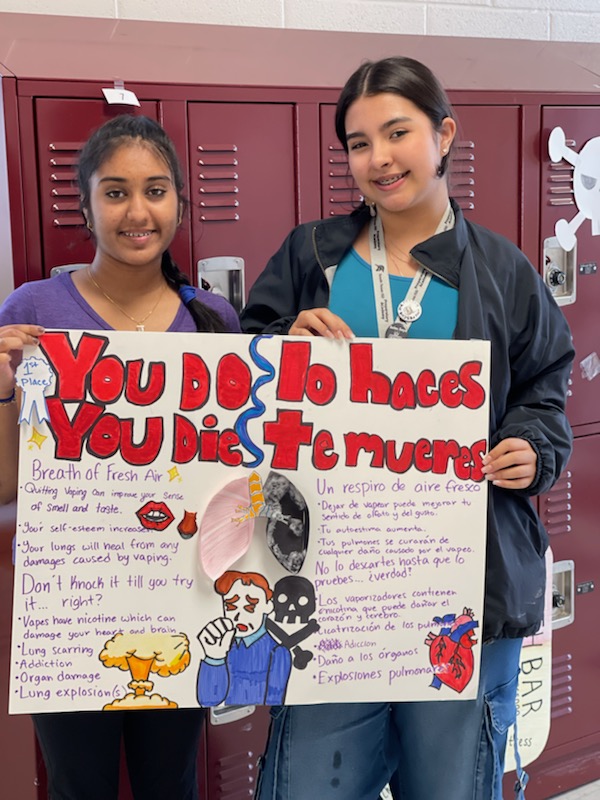 7
1st
Place
You Do
You Die
Breath of Fresh Air
• Quitting Vaping can improve your sense
of smell and taste.
• Your self-esteem increases
• Your lungs will heal from any
damages caused by vaping.
Don't knock it till you try
it... right?
• Vapes have nicotine which can
damage your heart and brain
• Lung scarring
• Addiction
• Organ damage
• Lung explosion(s)
lo haces
te mueres
Un respiro de aire fresco
• Dejar de vapear puede mejorar tu
sentido de olfato y del gusto.
• Tu autoestima aumenta.
• Tus pulmones se curarán de
cualquier daño causado por el vapeo.
No lo descartes hasta que lo
pruebes... ¿verdad?
• Los vaporizadores contienen
nicotina que puede dañar el
corazón y cerebro.
• Cicatrización de los
Adicción
• Daño a los órganos
• Explosiones
BAR